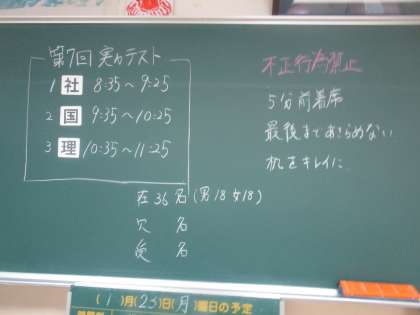 第7回 実力テスト
1 社 8:35〜9:25
2 国 9:35〜10:25
3 理 10:35〜11:25
不正行為禁止
5分前着席
最後まであきらめない
机をキレイに
在 36 名 (男18 女18)
欠 名
受 名
(1)月(23)日(月)曜日の予定